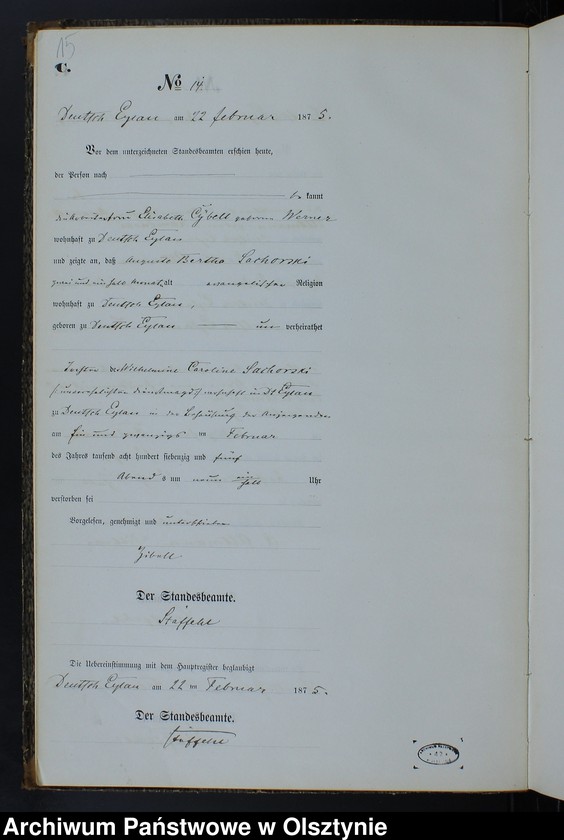 15
C.
No 14.
Deutsch Eylau am 22 Februar 1875.
Vor dem unterzeichneten Standesbeamten erschien heute,
der Person nach
be kannt
Elisabeth Cybell geborene Werner
wohnhaft zu Deutsch Eylau
und zeigte an, daß Auguste Bertha Sachorski
zwei und ein halb Monat alt evangelischer Religion
wohnhaft zu Deutsch Eylau,
geboren zu Deutsch Eylau un verheirathet
Tochter der Wilhelmine Caroline Sachorski
unverehelichten Dienstmagd wohnhaft in Dt Eylau
zu Deutsch Eylau in der Behausung der Anzeigenden
am ein und zwanzigs ten Februar
des Jahres tausend acht hundert siebenzig und fünf
Abend s um neun ein halb Uhr
verstorben sei
Vorgelesen, genehmigt und unterschrieben
Zibell
Der Standesbeamte.
Staffehl
Die Uebereinstimmung mit dem Hauptregister beglaubigt
Deutsch Eylau am 22 ten Februar 1875.
Der Standesbeamte.
Staffehl
Archiwum Państwowe w Olsztynie